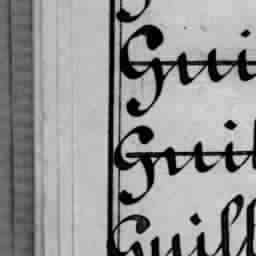 Gui
Guil
Guill